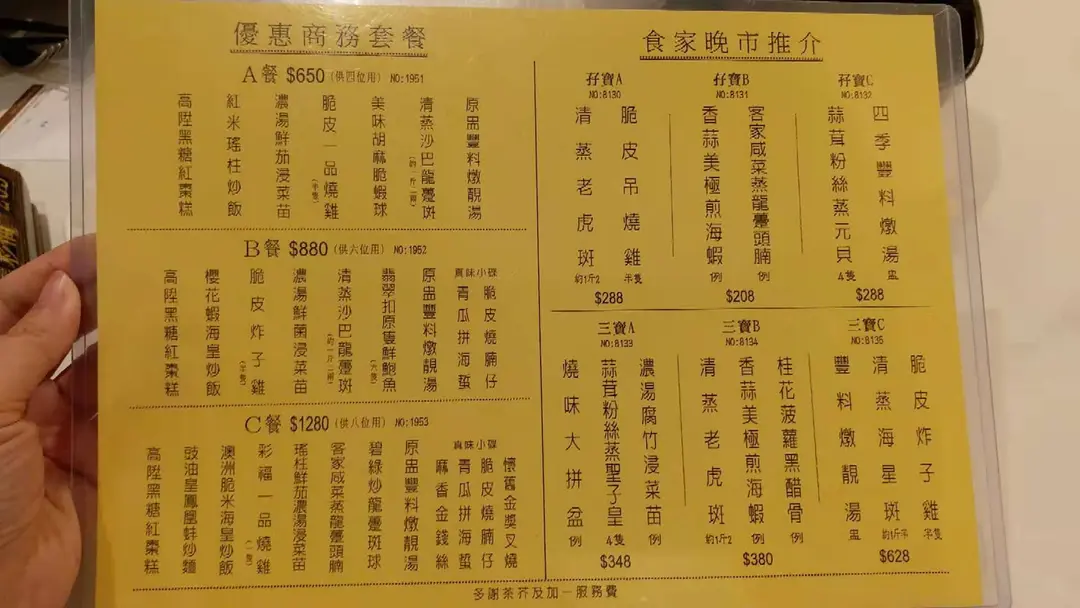 優惠商務套餐
A餐 $650 (供四位用) NO:1951
原盅豐料燉靚湯
清蒸沙巴龍躉斑 (約一斤二両)
美味胡麻脆蝦球
脆皮一品燒雞 (半隻)
濃湯鮮茄浸菜苗
紅米瑤柱炒飯
高陞黑糖紅棗糕
B餐 $880 (供六位用) NO:1952
真味小碟
脆皮燒腩仔
青瓜拼海蜇
原盅豐料燉靚湯
翡翠扣原隻鮮鮑魚 (六隻)
清蒸沙巴龍躉斑 (約一斤二両)
濃湯鮮菌浸菜苗
脆皮炸子雞 (半隻)
櫻花蝦海皇炒飯
高陞黑糖紅棗糕
C餐 $1280 (供八位用) NO:1953
真味小碟
懷舊金獎叉燒
脆皮燒腩仔
青瓜拼海蜇
麻香金錢絲
原盅豐料燉靚湯
碧綠炒龍躉斑球
客家咸菜蒸龍躉頭腩
瑤柱鮮茄濃湯浸菜苗
彩福一品燒雞 (一隻)
澳洲脆米海皇炒飯
豉油皇鳳凰蚌炒麵
高陞黑糖紅棗糕
食家晚市推介
孖寶A
NO:8130
脆皮吊燒雞 半隻
清蒸老虎斑 約1斤2
$288
孖寶B
NO:8131
客家咸菜蒸龍躉頭腩 例
香蒜美極煎海蝦 例
$208
孖寶C
NO:8132
四季豐料燉湯 盅
蒜茸粉絲蒸元貝 4隻
$288
三寶A
NO:8133
濃湯腐竹浸菜苗 例
蒜茸粉絲蒸聖子皇 4隻
燒味大拼盆 例
$348
三寶B
NO:8134
桂花菠蘿黑醋骨 例
香蒜美極煎海蝦 例
清蒸老虎斑 約1斤2
$380
三寶C
NO:8135
脆皮炸子雞 半隻
清蒸海星斑 約1斤半
豐料燉靚湯 盅
$628
多謝茶芥及加一服務費